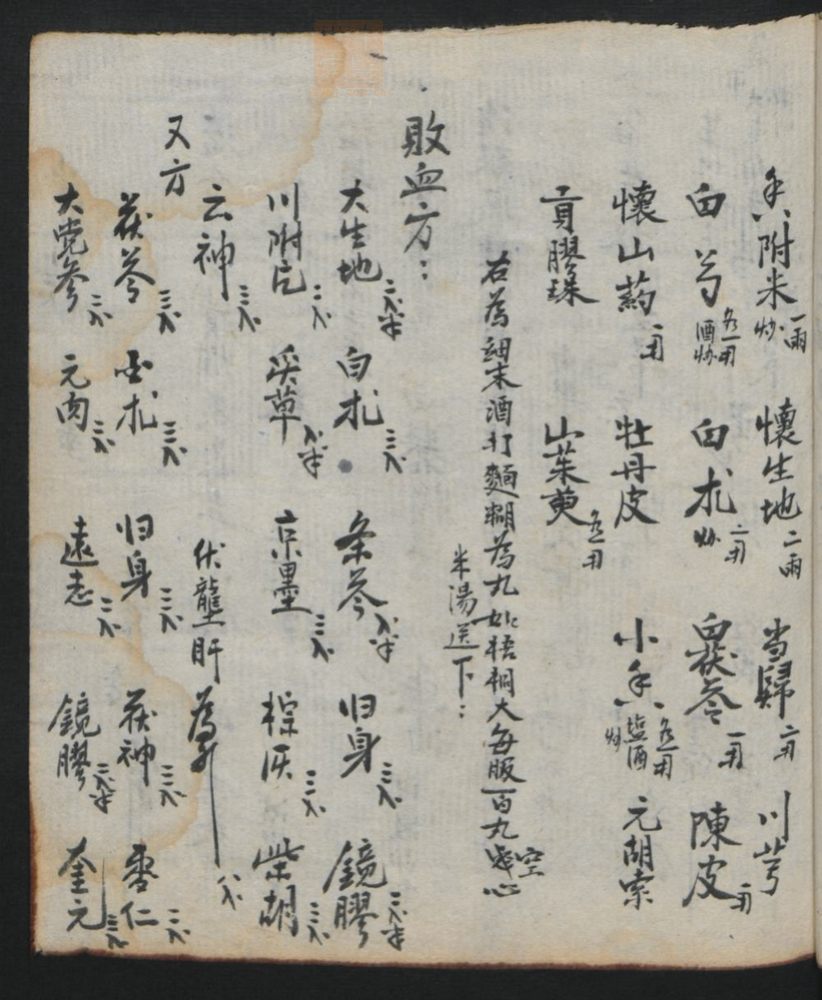 香附米炒一兩 懷生地二兩 当歸二两 川芎
白芍各一两酒炒 白朮炒二两 白茯苓一两 陳皮一两
懷山葯一两 牡丹皮 小香各一两塩酒炒 元胡索
貢膠珠 山茱萸各一两
右為細末酒打麵糊為丸如梧桐大每服百丸空心
米湯送下：
敗血方：
大生地三錢半 白朮三錢 条参錢半 归身三錢 鏡膠三錢半
川附片三錢 炙草錢半 京墨三錢 棕灰三錢 柴胡三錢
云神三錢 伏龍肝為引
又方
茯苓三錢 白朮三錢 归身三錢 茯神三錢 枣仁三錢
大党參三錢 元肉三錢 遠志三錢 鏡膠三錢半 奎元三錢